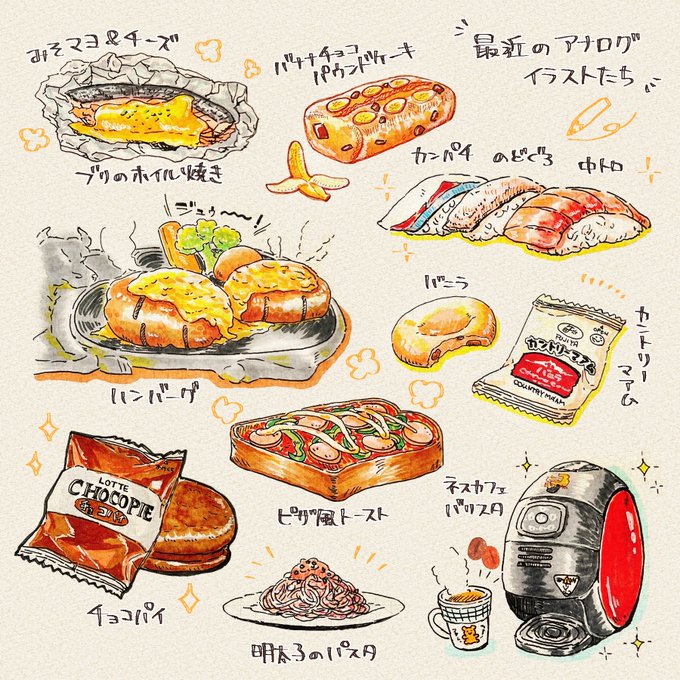 最近のアナログ
イラストたち
みそマヨ&チーズ
ブリのホイル焼き
バナナチョコ
パウンドケーキ
カンパチ のどぐろ 中トロ
ジュゥ〜〜!
ハンバーグ
バニラ
FUJIYA
OPEN
カントリーマアム
バニラ
COUNTRY MA'AM
カントリー
マアム
LOTTE
CHOCOPIE
チョコパイ
チョコパイ
ピザ風トースト
明太子のパスタ
ネスカフェ
バリスタ